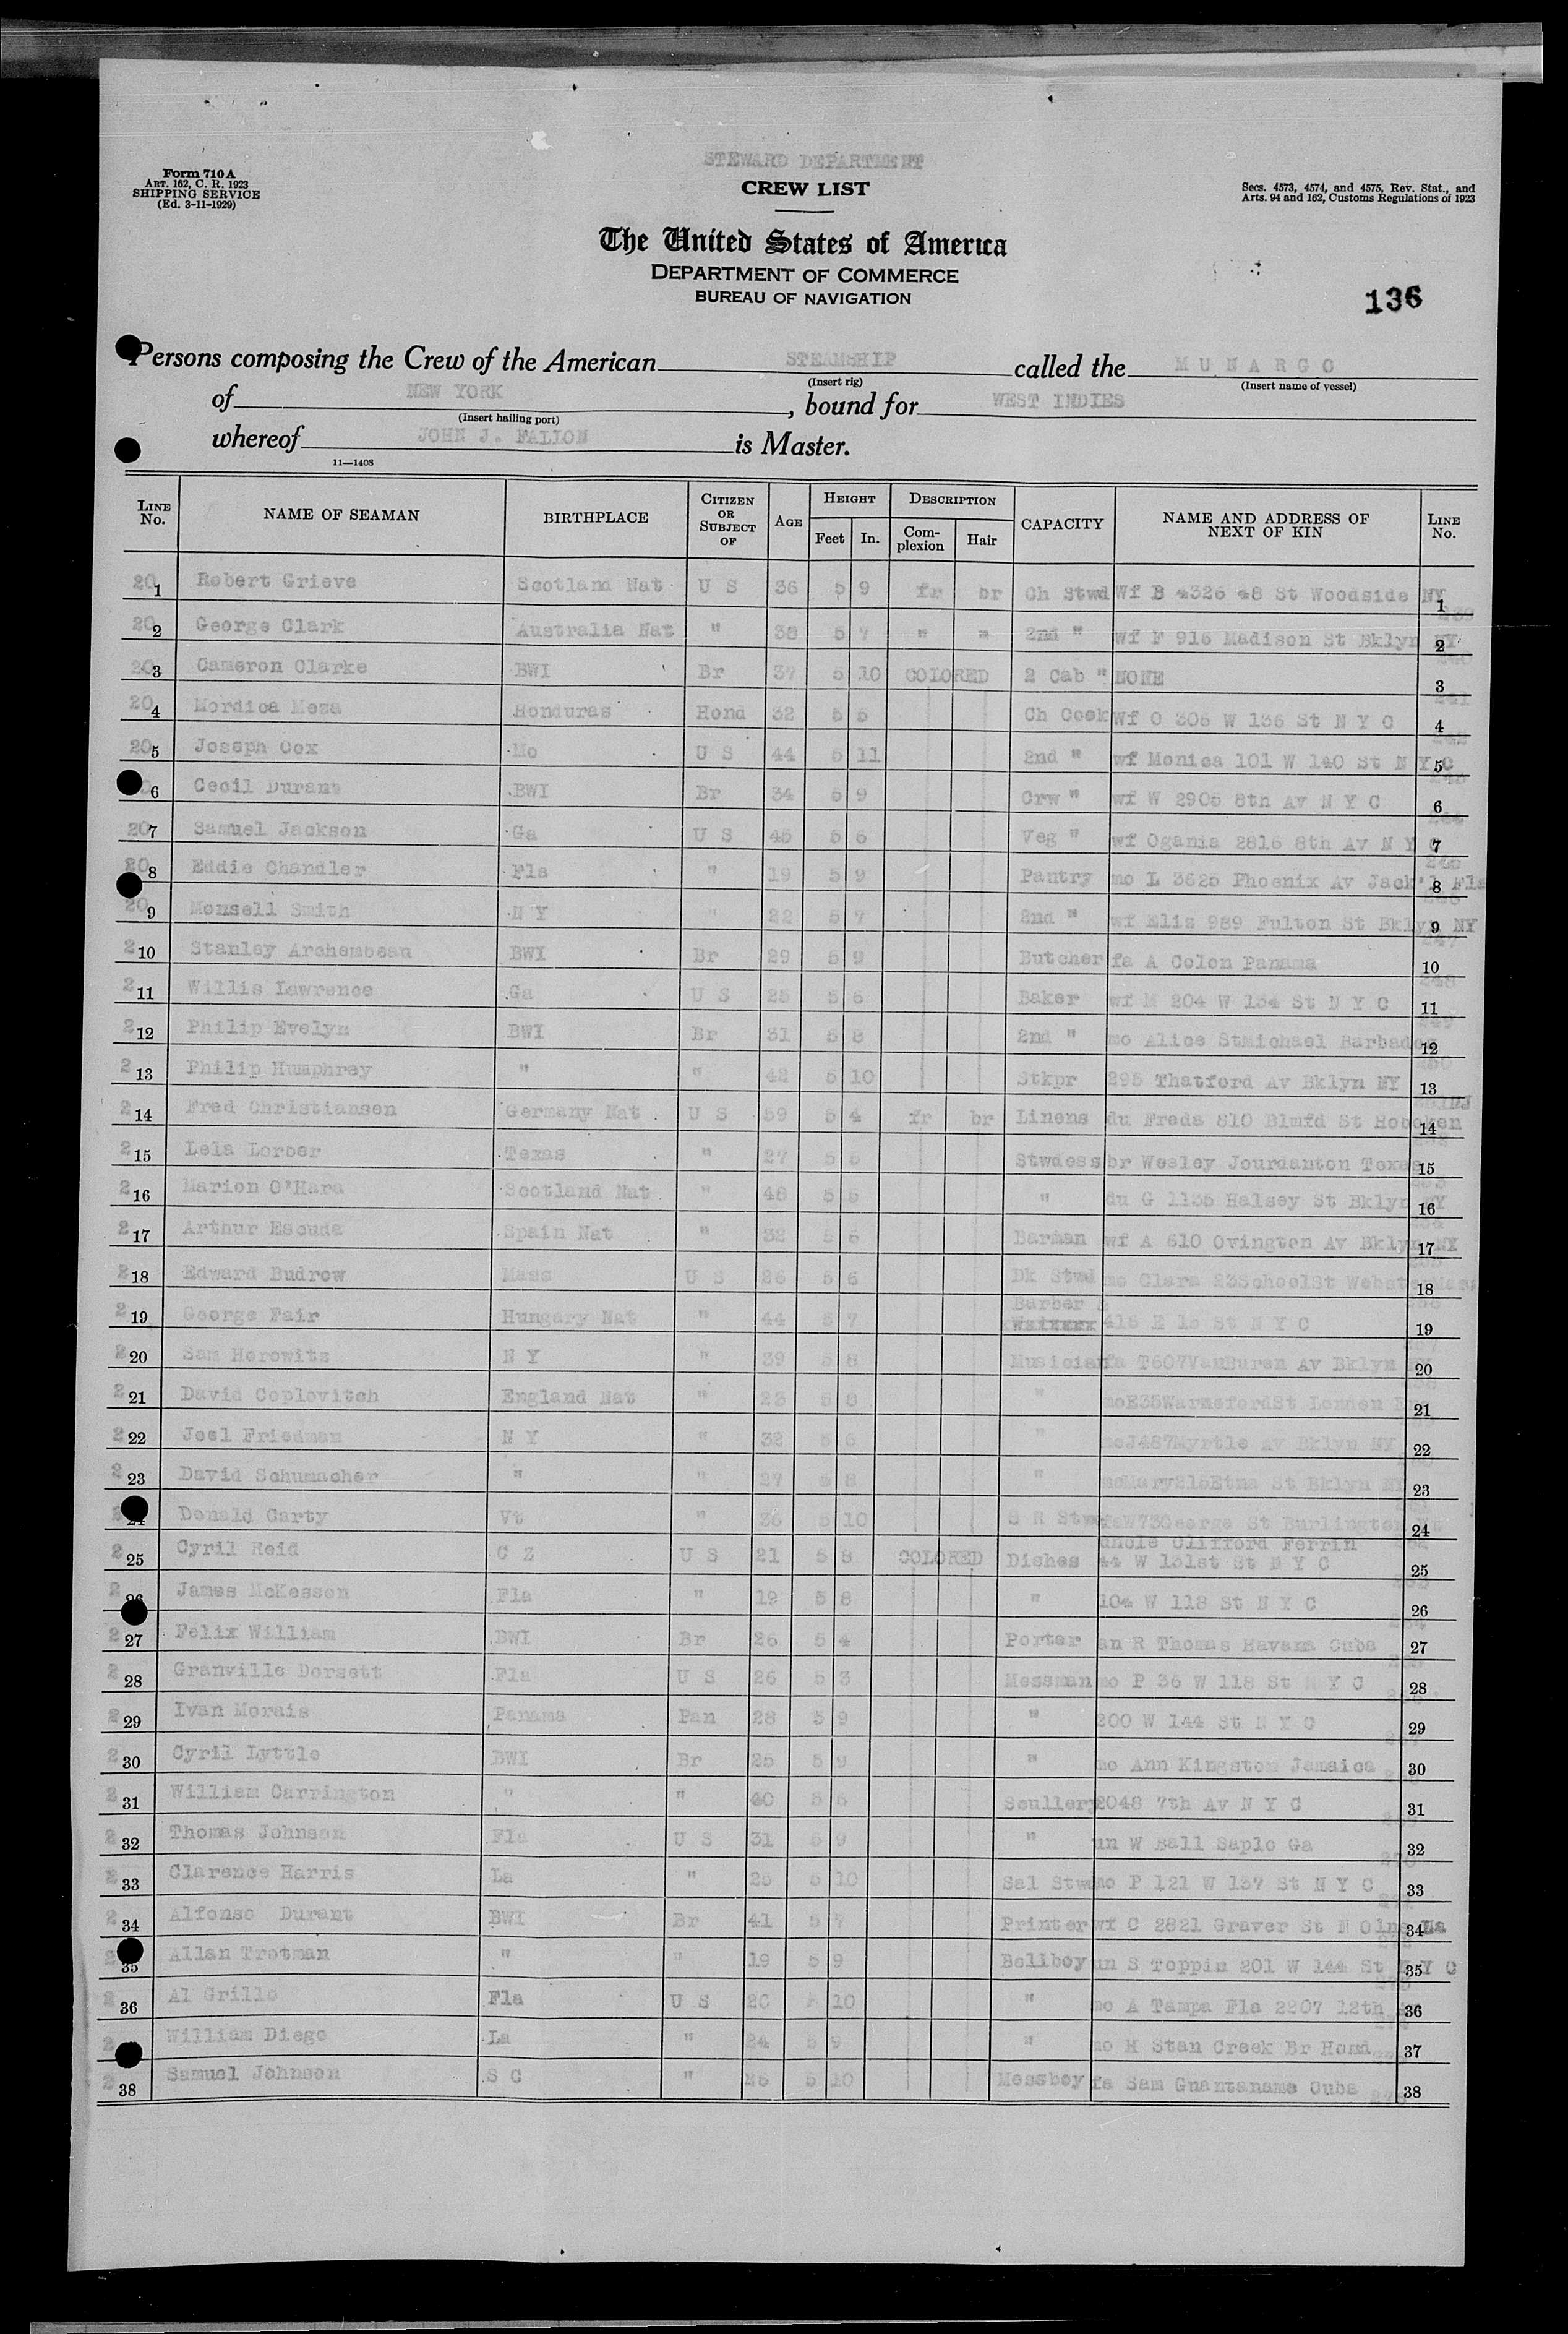 STEWARD DEPARTMENT
Form 710 A
ART. 162, C. R. 1923
SHIPPING SERVICE
(Ed. 3-11-1929)
CREW LIST
Secs. 4573, 4574, and 4575, Rev. Stat., and
Arts. 94 and 162, Customs Regulations of 1923
The United States of America
DEPARTMENT OF COMMERCE
BUREAU OF NAVIGATION
136
Persons composing the Crew of the American STEAMSHIP called the MUNARGO
(Insert rig) (Insert name of vessel)
of NEW YORK, bound for WEST INDIES
(Insert hailing port)
whereof JOHN J. FALLON is Master.
11—1408
LINE No. NAME OF SEAMAN BIRTHPLACE CITIZEN OR SUBJECT OF AGE HEIGHT Feet In. DESCRIPTION Complexion Hair CAPACITY NAME AND ADDRESS OF NEXT OF KIN LINE No.
1 Robert Grieve Scotland Nat U S 36 5 9 fr br Ch Stwd Wf B 4326 48 St Woodside NY 1
2 George Clark Australia Nat " 38 5 7 " " 2nd " wf F 916 Madison St Bklyn NY 2
3 Cameron Clarke BWI Br 37 5 10 COLORED 2 Cab " NONE 3
4 Mordica Mesa Honduras Hond 32 5 5 Ch Cook Wf O 306 W 136 St N Y C 4
5 Joseph Cox Mo U S 44 5 11 2nd " wf Monica 101 W 140 St N Y C 5
6 Cecil Durant BWI Br 34 5 9 Crw " wf W 2905 8th Av N Y C 6
7 Samuel Jackson Ga U S 45 5 6 Veg " wf Ogania 2816 8th Av N Y C 7
8 Eddie Chandler Fla " 19 5 9 Pantry mo L 3625 Phoenix Av Jack'l Fla 8
9 Monsell Smith N Y " 22 5 7 2nd " wf Elis 989 Fulton St Bklyn NY 9
10 Stanley Archembeau BWI Br 29 5 9 Butcher fa A Colon Panama 10
11 Willis Lawrence Ga U S 25 5 6 Baker wf M 204 W 134 St N Y C 11
12 Philip Evelyn BWI Br 31 5 8 2nd " mo Alice StMichael Barbados 12
13 Philip Humphrey " " 42 5 10 Stkpr 295 Thatford Av Bklyn NY 13
14 Fred Christiansen Germany Nat U S 59 5 4 fr br Linens du Freda 810 Blmfd St Hoboken NJ 14
15 Lela Lorber Texas " 27 5 5 Stwdess br Wesley Jourdanton Texas 15
16 Marion O'Hara Scotland Nat " 48 5 5 " du G 1135 Halsey St Bklyn NY 16
17 Arthur Escuda Spain Nat " 32 5 6 Barman wf A 610 Ovington Av Bklyn NY 17
18 Edward Budrow Mass U S 26 5 6 Dk Stwd mo Clara 23SchoolSt Webster Mass 18
19 George Fair Hungary Nat " 44 5 7 Barber & 416 E 15 St N Y C 19
20 Sam Horowitz N Y " 39 5 8 Musician fa T607VanBuren Av Bklyn 20
21 David Coplovitch England Nat " 23 5 8 " moE35WarnefordSt London 21
22 Joel Friedman N Y " 32 5 6 " moJ487Myrtle Av Bklyn NY 22
23 David Schumacher " " 27 5 8 " moMary215Etna St Bklyn NY 23
24 Donald Carty Vt " 36 5 10 S R Stwd George St Burlington Vt 24
25 Cyril Reid C Z U S 21 5 8 COLORED Dishes uncle Clifford Perrin 44 W 131st St N Y C 25
26 James McKesson Fla " 19 5 8 " 104 W 118 St N Y C 26
27 Felix William BWI Br 26 5 4 Porter an R Thomas Havana Cuba 27
28 Granville Dorsett Fla U S 26 5 3 Messman mo P 36 W 118 St N Y C 28
29 Ivan Morais Panama Pan 28 5 9 " 200 W 144 St N Y C 29
30 Cyril Lyttle BWI Br 25 5 9 " mo Ann Kingston Jamaica 30
31 William Carrington " " 40 5 6 Scullery 2048 7th Av N Y C 31
32 Thomas Johnson Fla U S 31 5 9 " un W Sall Saplo Ga 32
33 Clarence Harris La " 25 5 10 Sal Stwd mo P 121 W 137 St N Y C 33
34 Alfonso Durant BWI Br 41 5 7 Printer wf C 2821 Graver St N Olns La 34
35 Allan Trotman " " 19 5 9 Bellboy un S Toppin 201 W 144 St N Y C 35
36 Al Grillo Fla U S 20 5 10 " mo A Tampa Fla 2207 12th 36
William Diego La " 24 5 9 " mo H Stan Creek Br Hond 37
38 Samuel Johnson S C " 26 5 10 Messboy fa Sam Guantanamo Cuba 38